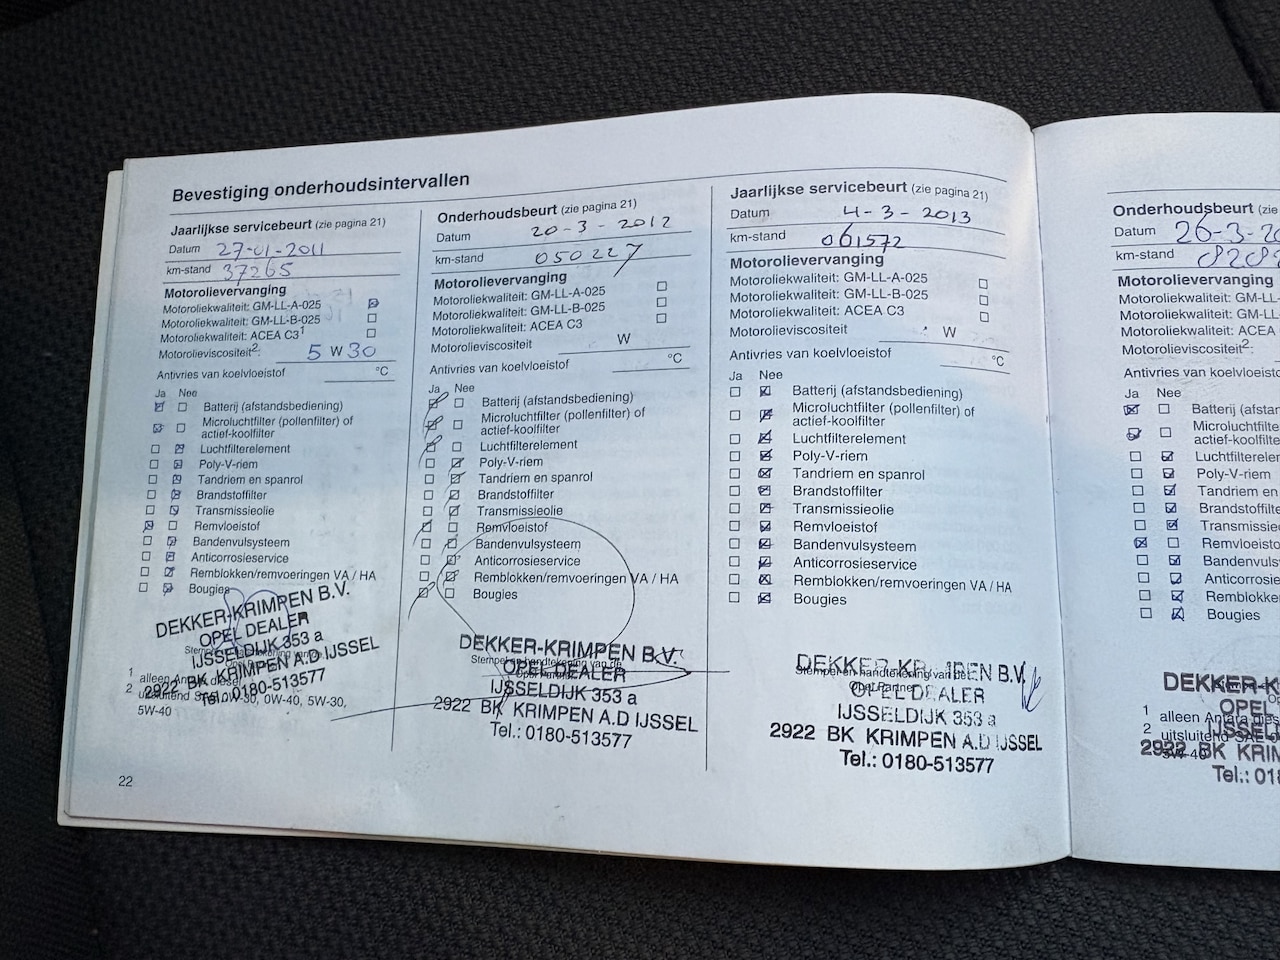 Bevestiging onderhoudsintervallen
Jaarlijkse servicebeurt (zie pagina 21)
Datum 27-01-2011
km-stand 37265
Motorolievervanging
Motoroliekwaliteit: GM-LL-A-025
Motoroliekwaliteit: GM-LL-B-025
Motoroliekwaliteit: ACEA C3¹
Motorolieviscositeit²: 5 W 30
Antivries van koelvloeistof °C
Ja Nee
Batterij (afstandsbediening)
Microluchtfilter (pollenfilter) of
actief-koolfilter
Luchtfilterelement
Poly-V-riem
Tandriem en spanrol
Brandstoffilter
Transmissieolie
Remvloeistof
Bandenvulsysteem
Anticorrosieservice
Remblokken/remvoeringen VA / HA
Bougies
DEKKER-KRIMPEN B.V.
OPEL DEALER
IJSSELDIJK 353 a
2922 BK KRIMPEN A.D IJSSEL
Tel.: 0180-513577
1 alleen Antara diesel
2 uitsluitend SAE 0W-30, 0W-40, 5W-30,
5W-40
22
Onderhoudsbeurt (zie pagina 21)
Datum 20-3-2012
km-stand 050227
Motorolievervanging
Motoroliekwaliteit: GM-LL-A-025
Motoroliekwaliteit: GM-LL-B-025
Motoroliekwaliteit: ACEA C3
Motorolieviscositeit W
Antivries van koelvloeistof °C
Ja Nee
Batterij (afstandsbediening)
Microluchtfilter (pollenfilter) of
actief-koolfilter
Luchtfilterelement
Poly-V-riem
Tandriem en spanrol
Brandstoffilter
Transmissieolie
Remvloeistof
Bandenvulsysteem
Anticorrosieservice
Remblokken/remvoeringen VA / HA
Bougies
Stempel en handtekening van de
DEKKER-KRIMPEN B.V.
OPEL DEALER
IJSSELDIJK 353 a
2922 BK KRIMPEN A.D IJSSEL
Tel.: 0180-513577
Jaarlijkse servicebeurt (zie pagina 21)
Datum 4-3-2013
km-stand 061572
Motorolievervanging
Motoroliekwaliteit: GM-LL-A-025
Motoroliekwaliteit: GM-LL-B-025
Motoroliekwaliteit: ACEA C3
Motorolieviscositeit W
Antivries van koelvloeistof °C
Ja Nee
Batterij (afstandsbediening)
Microluchtfilter (pollenfilter) of
actief-koolfilter
Luchtfilterelement
Poly-V-riem
Tandriem en spanrol
Brandstoffilter
Transmissieolie
Remvloeistof
Bandenvulsysteem
Anticorrosieservice
Remblokken/remvoeringen VA / HA
Bougies
Stempel en handtekening van de
Opel Partner
DEKKER-KRIMPEN B.V.
OPEL DEALER
IJSSELDIJK 353 a
2922 BK KRIMPEN A.D IJSSEL
Tel.: 0180-513577
Onderhoudsbeurt (zie
Datum 26-3-20
km-stand 0828
Motorolievervanging
Motoroliekwaliteit: GM-LL
Motoroliekwaliteit: GM-LL
Motoroliekwaliteit: ACEA
Motorolieviscositeit²:
Antivries van koelvloeistof
Ja Nee
Batterij (afstan
Microluchtfilter
actief-koolfilter
Luchtfilterelem
Poly-V-riem
Tandriem en
Brandstoffilte
Transmissie
Remvloeisto
Bandenvuls
Anticorrosie
Remblokke
Bougies
DEKKER-K
OPEL
IJSSEL
2922 BK KRIM
Tel.: 018
1 alleen Antara dies
2 uitsluitend SAE
5W-40